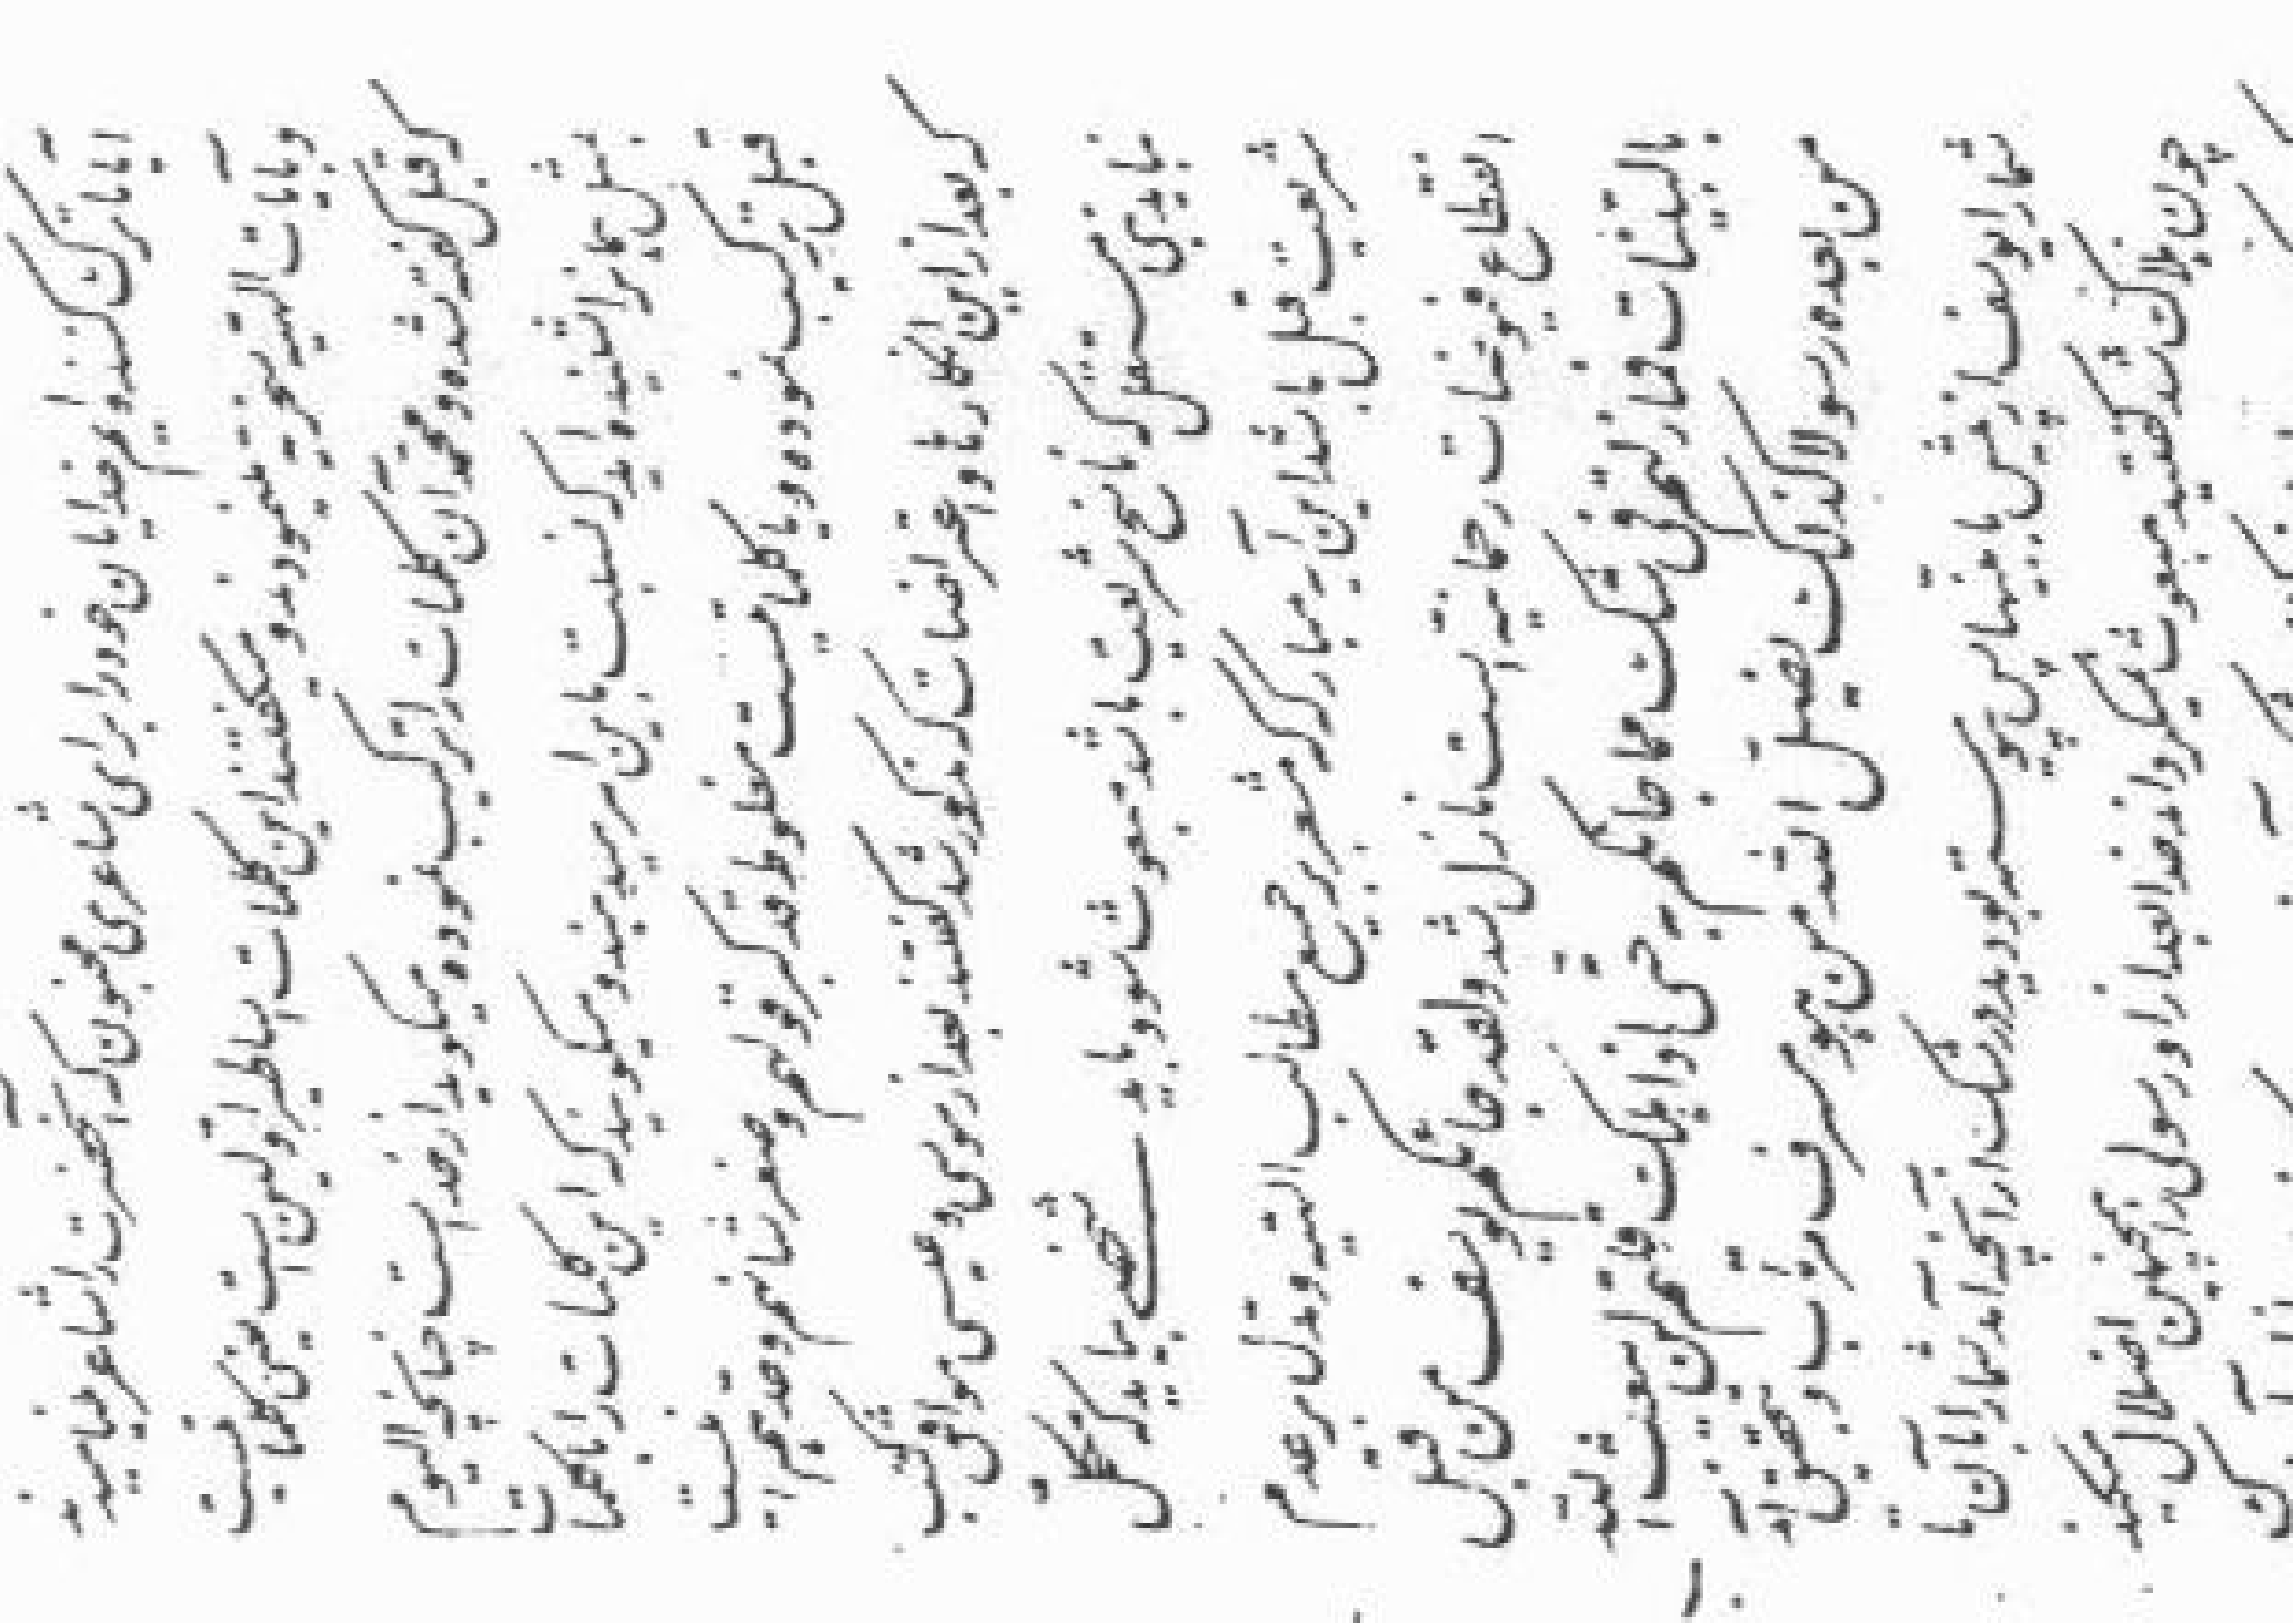 آیا ترک کننده ایم خدایان خود را برای شاعری مجنون که آنحضرت را شاعر مینامیدند
و بآیات الهی سخریه مینمودند و میگفتند این کلمات اساطیر اولین است یعنی کلماتیست
که قبل گفته شده و محمد آن کلمات را ترکیب نموده و میگوید از خداست چنانچه الیوم
بمثل همانرا شنیده اید که نسبت باین امر میدهند و میگویند که این کلمات را با کلمات
قبل ترکیب نموده و یا کلماتیست مغلوط قد کبر قولهم و صغر شأنهم و حدهم
که بعد از این انکارها و اعتراضات که مذکور شد گفتند بعد از موسی و عیسی موافق کتب
نباید نبی مستقلی که ناسخ شریعت باشد مبعوث شود و باید شخصی بیاید که مکمل
شریعت قبل باشد این آیه مبارکه که مشعر بر جمیع مطالب الهیه و مدل بر عدم
انقطاع فیوضات رحمانیه است نازل شد ولقد جائکم یوسف من قبل
بالبینات فما زلتم فی شک مما جائکم به حتی اذا هلک قلتم لن یبعث الله
من بعده رسولا کذلک یضل الله من هو مسرف مرتاب
شما را یوسف از پیش با بس بودید در شک از آنچه آمد شما را بآن تا
چون هلاک شد گفتید مبعوث نمیگرداند خدا بعد از او رسولی را اینچنین اضلال میکند